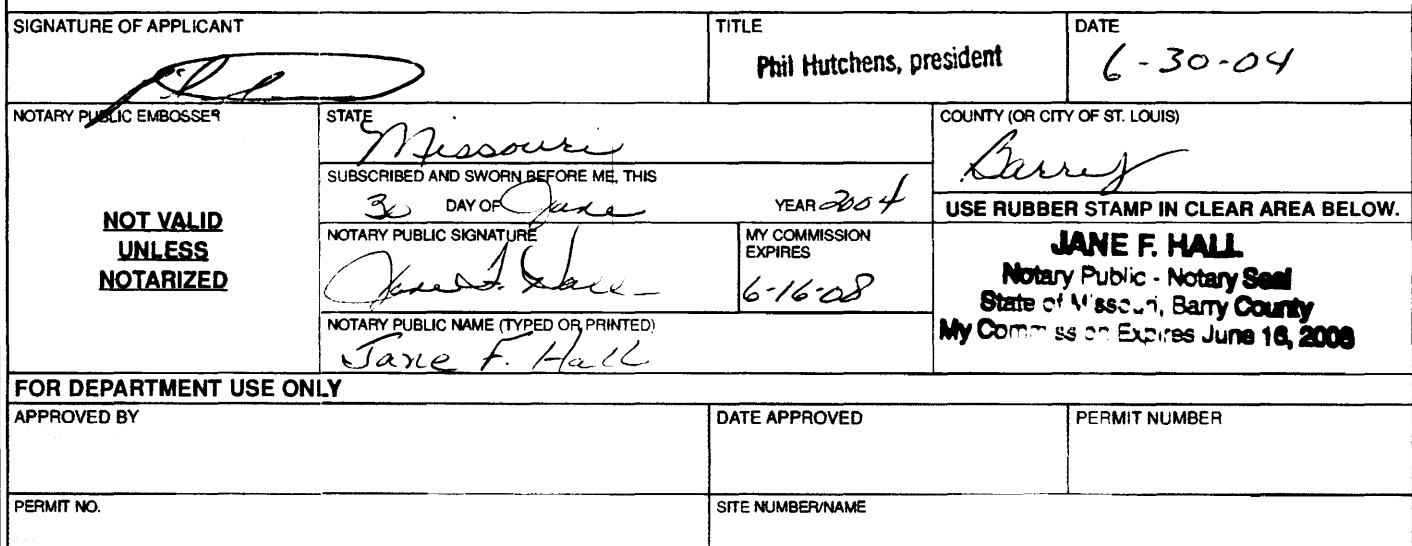 SIGNATURE OF APPLICANT
TITLE
Phil Hutchens, president
DATE
6-30-04
NOTARY PUBLIC EMBOSSER
NOT VALID
UNLESS
NOTARIZED
STATE
Missouri
COUNTY (OR CITY OF ST. LOUIS)
Barry
SUBSCRIBED AND SWORN BEFORE ME, THIS
30 DAY OF June YEAR 2004
USE RUBBER STAMP IN CLEAR AREA BELOW.
NOTARY PUBLIC SIGNATURE
Jane F. Hall
MY COMMISSION
EXPIRES
6-16-08
JANE F. HALL
Notary Public - Notary Seal
State of Missouri, Barry County
My Commission Expires June 16, 2008
NOTARY PUBLIC NAME (TYPED OR PRINTED)
Jane F. Hall
FOR DEPARTMENT USE ONLY
APPROVED BY
DATE APPROVED
PERMIT NUMBER
PERMIT NO.
SITE NUMBER/NAME